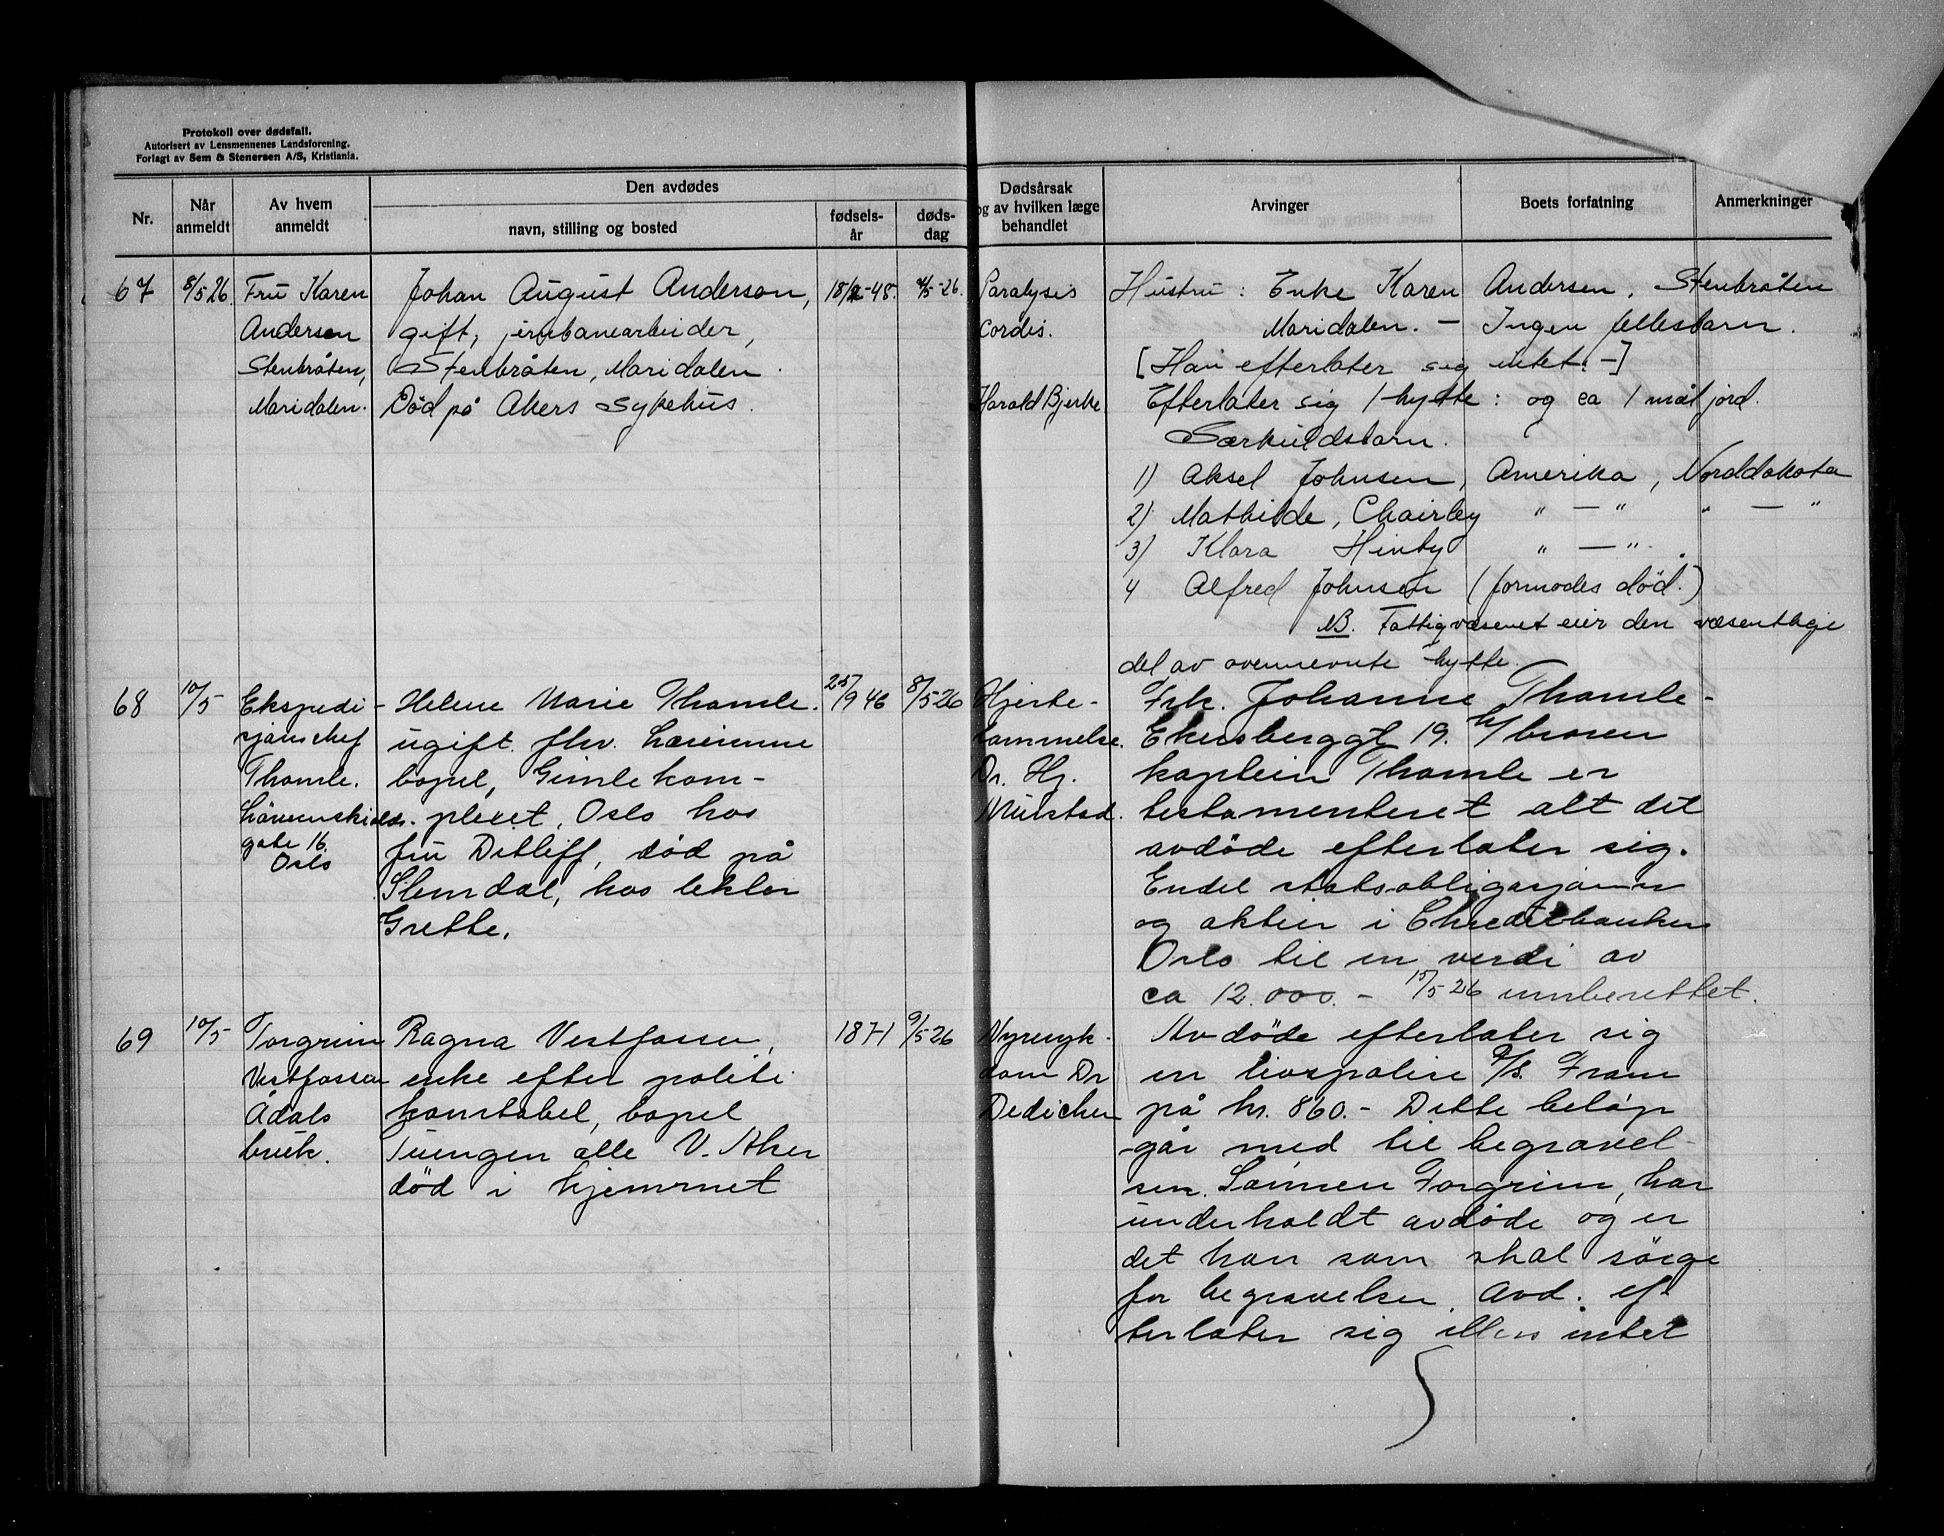 Protokoll over dødsfall.
Autorisert av Lensmennenes Landsforening.
Forlagt av Sem & Stenersen A/S, Kristiania.
Nr.
Når anmeldt
Av hvem anmeldt
Den avdødes
navn, stilling og bosted
fødsels-år
døds-dag
Dødsårsak og av hvilken læge behandlet
Arvinger
Boets forfatning
Anmerkninger
67
8/5 26
Fru Karen
Andersen
Stenbråten,
Maridalen.
Johan August Anderson,
gift, jernbanearbeider,
Stenbråten, Maridalen.
Død på Akers Sykehus.
-48.
/5-26.
Paralysis
Cordis.
Harald Bjerke
Hustru: Enke Karen Andersen, Stenbråten
Maridalen. — Ingen fellesbarn.
[Han efterlater sig intet. -]
Efterlater sig 1 hytte: og ca 1 mål jord.
Særkuldsbarn.
1) Aksel Johnsen, Amerika, Norddakota
2) Mathilde, Chairley " — " " — "
3) Klara Hinby " — " .
4 Alfred Johnsen (formodes død.)
NB. Fattigvæsenet eier den væsentlige
del av ovennevnte hytte.
68
10/5
Ekspedi-
sjonschef
Thomle.
Løvenskiolds.
gate 16.
Oslo
Helene Marie Thomle.
ugift. fhv. Lærerinne
bopel, Gimlekom-
plexet, Oslo hos
fru Ditleff, død på
Slemdal, hos lektor
Grette.
25/9 46
8/5 26
Hjerte-
lammelse.
Dr. Hj.
Mustad.
Frk. Johanne Thomle-
Ekersberggt 19. broren
kaptein Thomle er
testamenteret alt det
avdøde efterlater sig.
Endel statsobligasjoner
og aktier i Chreditbanken
Oslo til en verdi av
ca 12.000.- 15/5 26 innberettet.
69
10/5
Torgrim
Vestfossen
Ådals
bruk.
Ragna Vestfossen,
enke efter politi
konstabel, bopel
Tuengen alle V. Aker
død i hjemmet
1871
9/5 26
Nyresyk-
dom Dr
Dedichen
Avdøde efterlater sig
en livspolise A/S. Fram
på kr. 860.- Dette beløp
går med til begravel-
sen. Sønnen Torgrim, har
underholdt avdøde og er
det han som skal sørge
for begravelsen. Avd. ef-
terlater sig ellers intet